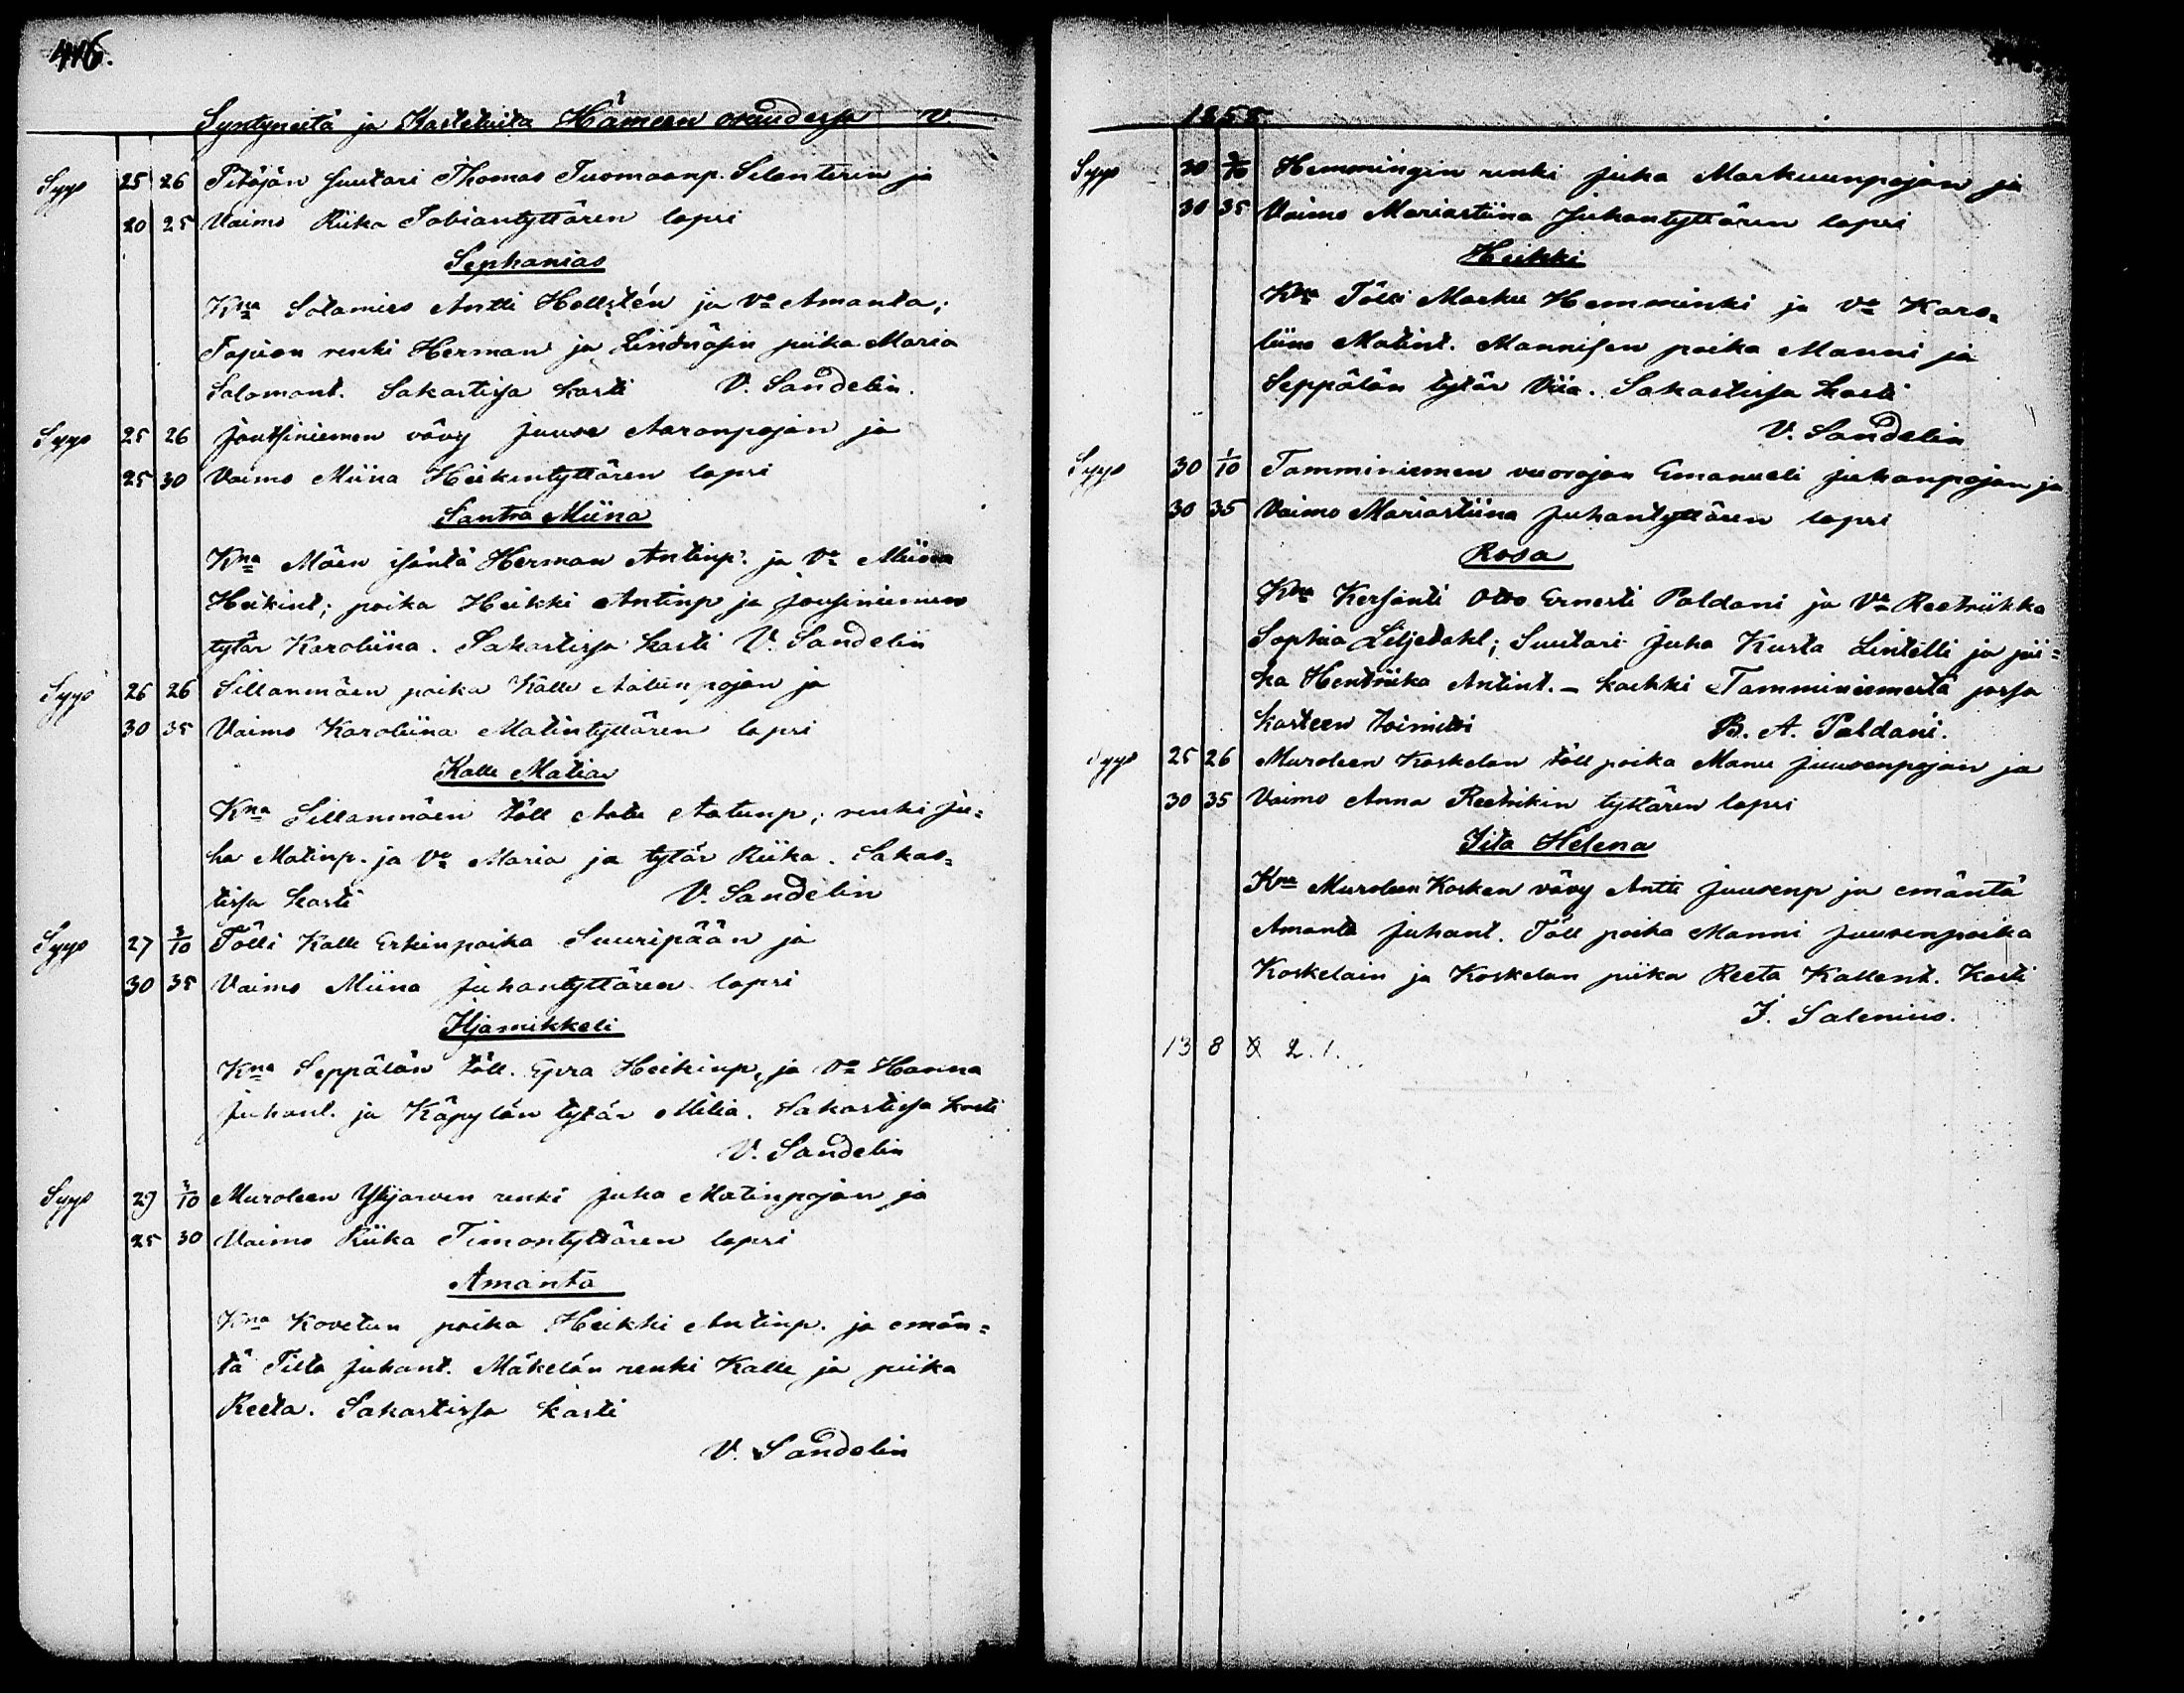 416.
Syntyneitä ja Kastetuita Hämeen osuudessa V.
Syys 25 26 Pitäjän Suutari Thomas Tuomaanp. Selanterin ja
20 25 Vaimo Riika Tobiantyttären lapsi
Sephanias
Kna Sotamies Antti Hellstén ja Va Amanta;
Tapion renki Herman ja piika Maria
Salamont. Sakastissa kasti V. Sandelin.
Syys 25 26 Joutsiniemen vävy Juuse Aaronpojan ja
25 30 Vaimo Miina Heikintyttären lapsi
Santra Miina
Kna Mäen isäntä Herman Antinp. ja Va Miina
Heikint; poika Heikki Antinp ja Jousiniemen
tytär Karoliina. Sakastissa kasti V. Sandelin
Syys 26 26 Sillanmäen poika Kalle Aatunpojan ja
30 35 Vaimo Karoliina Matintyttären lapsi
Kalle Matias
Kna Sillanmäen töll Aatu Aatunp; renki Ju=
ha Matinp. ja Va Maria ja tytär Riika. Sakas=
tissa kasti V. Sandelin
Syys 27 3/10 Tölli Kalle Erkinpoika Suuripään ja
30 35 Vaimo Miina Juhantyttären lapsi
Iljamikkeli
Kna Seppälän töll. Esra Heikinp, ja Va Hanna
Juhant. ja Käpylän tytär Milia. Sakastissa kasti
V. Sandelin
Syys 29 3/10 Muroleen Yhjarven renki Juha Matinpojan ja
25 30 Vaimo Riika Timontyttären lapsi
Amanta
Kna Kovetun poika Heikki Antinp. ja emän=
tä Tilta Juhant. Mäkelän renki Kalle ja piika
Reeta. Sakastissa kasti
V. Sandelin
1855
Syys 30 3/10 Hemmingin renki Juha Markuunpojan ja
30 35 Vaimo Mariastiina Juhantyttären lapsi
Heikki
Kna Tölli Marku Hemminki ja Va Karo=
liina Matint. Mannisen poika Manni ja
Seppälän tytär Viia. Sakastissa kasti
V. Sandelin
Syys 30 1/10 Tamminiemen vuorojan Emanueli Juhanpojan ja
30 35 Vaimo Mariastiina Juhantyttären lapsi
Rosa
Kna Kersanti Otto Ernesti Paldani ja Va Reetriikka
Sophia Liljedahl; Suutari Juha Kusta Lintelli ja pii=
ka Hentriika Antint. – kaikki Tamminiemestä jossa
kasteen toimitti B. A. Paldani.
Syys 25 26 Muroleen Koskelan töll poika Manu Juusenpojan ja
30 35 Vaimo Anna Reetrikin tyttären lapsi
Iita Helena
Kna Muroleen Kosken vävy Antti Juusenp ja emäntä
Amanta Juhant. Töll poika Manni Juusenpoika
Koskelain ja Koskelan piika Reeta Kallent. Kasti
J. Salenius.
13 8 2. 1.